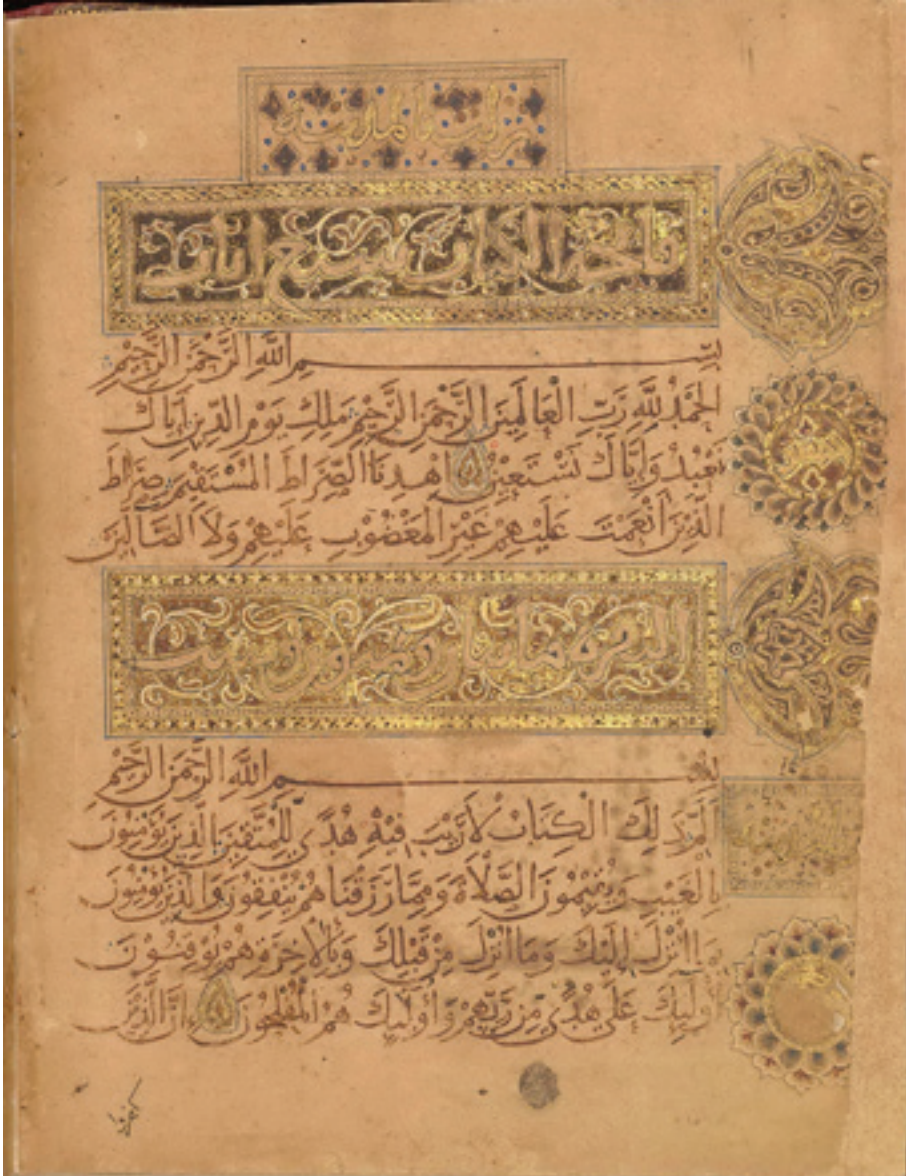 فاتحة الكتاب سبع ايات
بِسْمِ اللَّهِ الرَّحْمَنِ الرَّحِيْمِ
الْحَمْدُ لِلَّهِ رَبِّ الْعَالَمِيْنَ الرَّحْمَنِ الرَّحِيْمِ مَلِكِ يَوْمِ الدِّيْنِ إِيَّاكَ
نَعْبُدُ وَإِيَّاكَ نَسْتَعِيْنُ اهْدِنَا الصِّرَاطَ الْمُسْتَقِيْمَ صِرَاطَ
الَّذِيْنَ أَنْعَمْتَ عَلَيْهِمْ غَيْرِ الْمَغْضُوْبِ عَلَيْهِمْ وَلَا الضَّالِّيْنَ
البقرة
بِسْمِ اللَّهِ الرَّحْمَنِ الرَّحِيْمِ
الٓمٓ ذَلِكَ الْكِتَابُ لَا رَيْبَ فِيْهِ هُدًى لِلْمُتَّقِيْنَ الَّذِيْنَ يُؤْمِنُوْنَ
بِالْغَيْبِ وَيُقِيْمُوْنَ الصَّلَاةَ وَمِمَّا رَزَقْنَاهُمْ يُنْفِقُوْنَ وَالَّذِيْنَ يُؤْمِنُوْنَ
بِمَا أُنْزِلَ إِلَيْكَ وَمَا أُنْزِلَ مِنْ قَبْلِكَ وَبِالْآخِرَةِ هُمْ يُوْقِنُوْنَ
أُولَئِكَ عَلَى هُدًى مِنْ رَبِّهِمْ وَأُولَئِكَ هُمُ الْمُفْلِحُوْنَ إِنَّ الَّذِيْنَ
كفروا